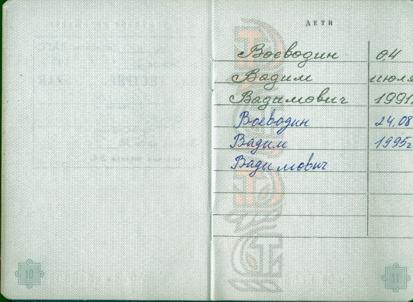 ДЕТИ
Воеводин 04
Вадим июля
Вадимович 1991г
Воеводин 24,08
Вадим 1995г
Вадимович
10 11